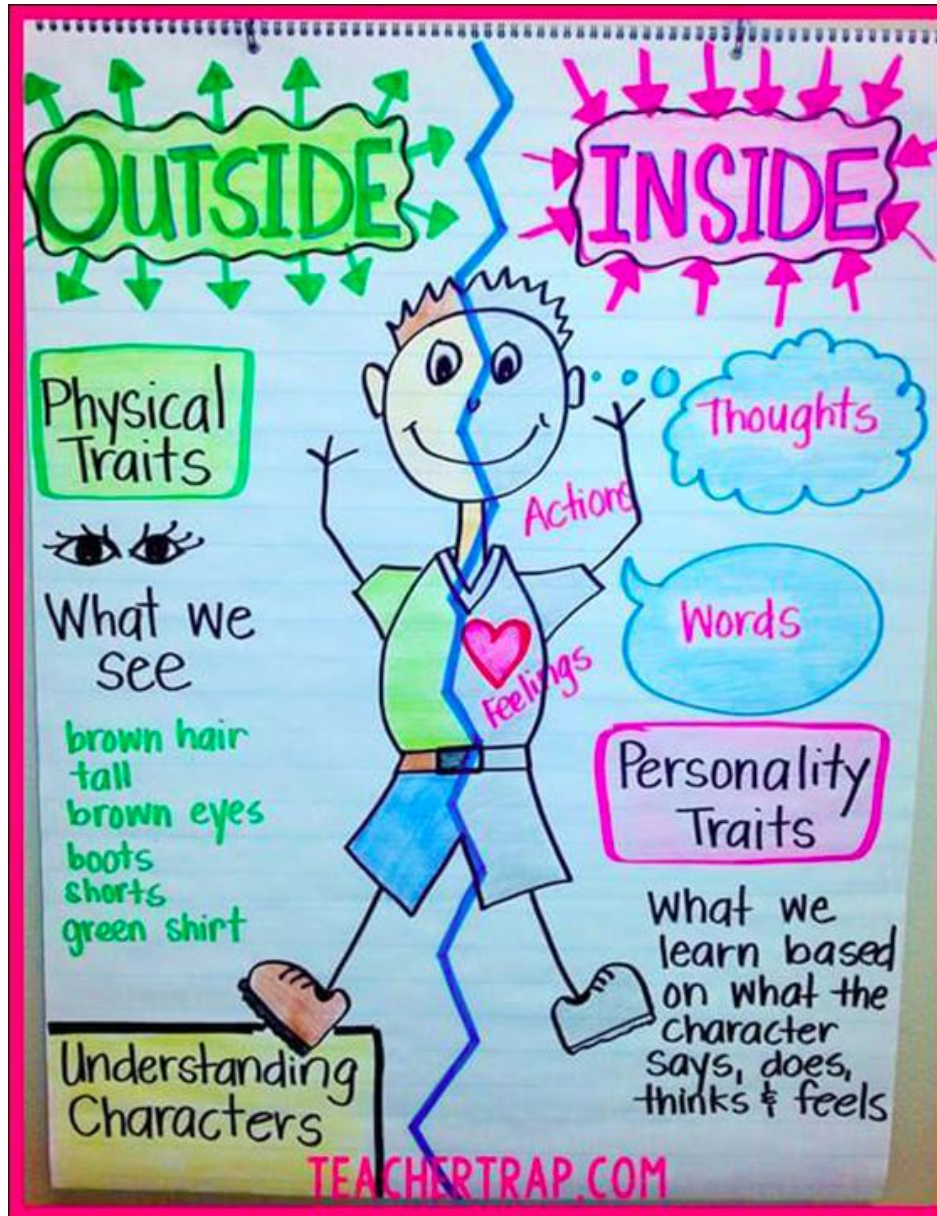 OUTSIDE
Physical
Traits
What we
see
brown hair
tall
brown eyes
boots
shorts
green shirt
Understanding
Characters
INSIDE
Thoughts
Actions
Words
Feelings
Personality
Traits
What we
learn based
on what the
character
says, does,
thinks & feels
TEACHERTRAP.COM